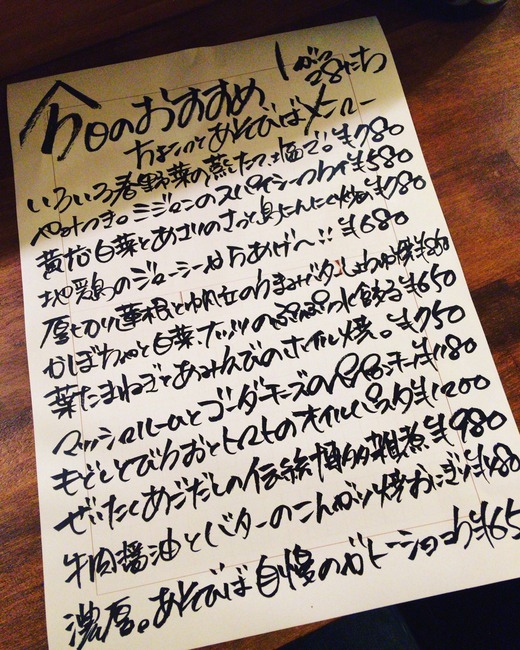 今日のおすすめ 1がつ28にち
ちょこっとあそびばメニュー
いろいろ春野菜の蒸したて、塩で。¥780
やみつき。ミジャンのスパイシー ¥580
黄 白菜とあさりのさっと島にんにく炒め ¥780
地鶏のジューシーからあげ〜!! ¥680
厚切り蓮根と帆立のうまみバターしょうゆ焼 ¥
かぼちゃと白菜、ナッツのぷるぷる水餃子 ¥650
葉たまねぎとあみえびのホイル焼。¥750
マッシュルームとゴーダチーズの ¥
もどしとびうおとトマトのオイルパスタ ¥1200
ぜいたくあごだしの伝統博多雑煮 ¥980
牛肉醤油とバターのこんがり焼おにぎり ¥480
濃厚。あそびば自慢のガトーショコラ ¥65